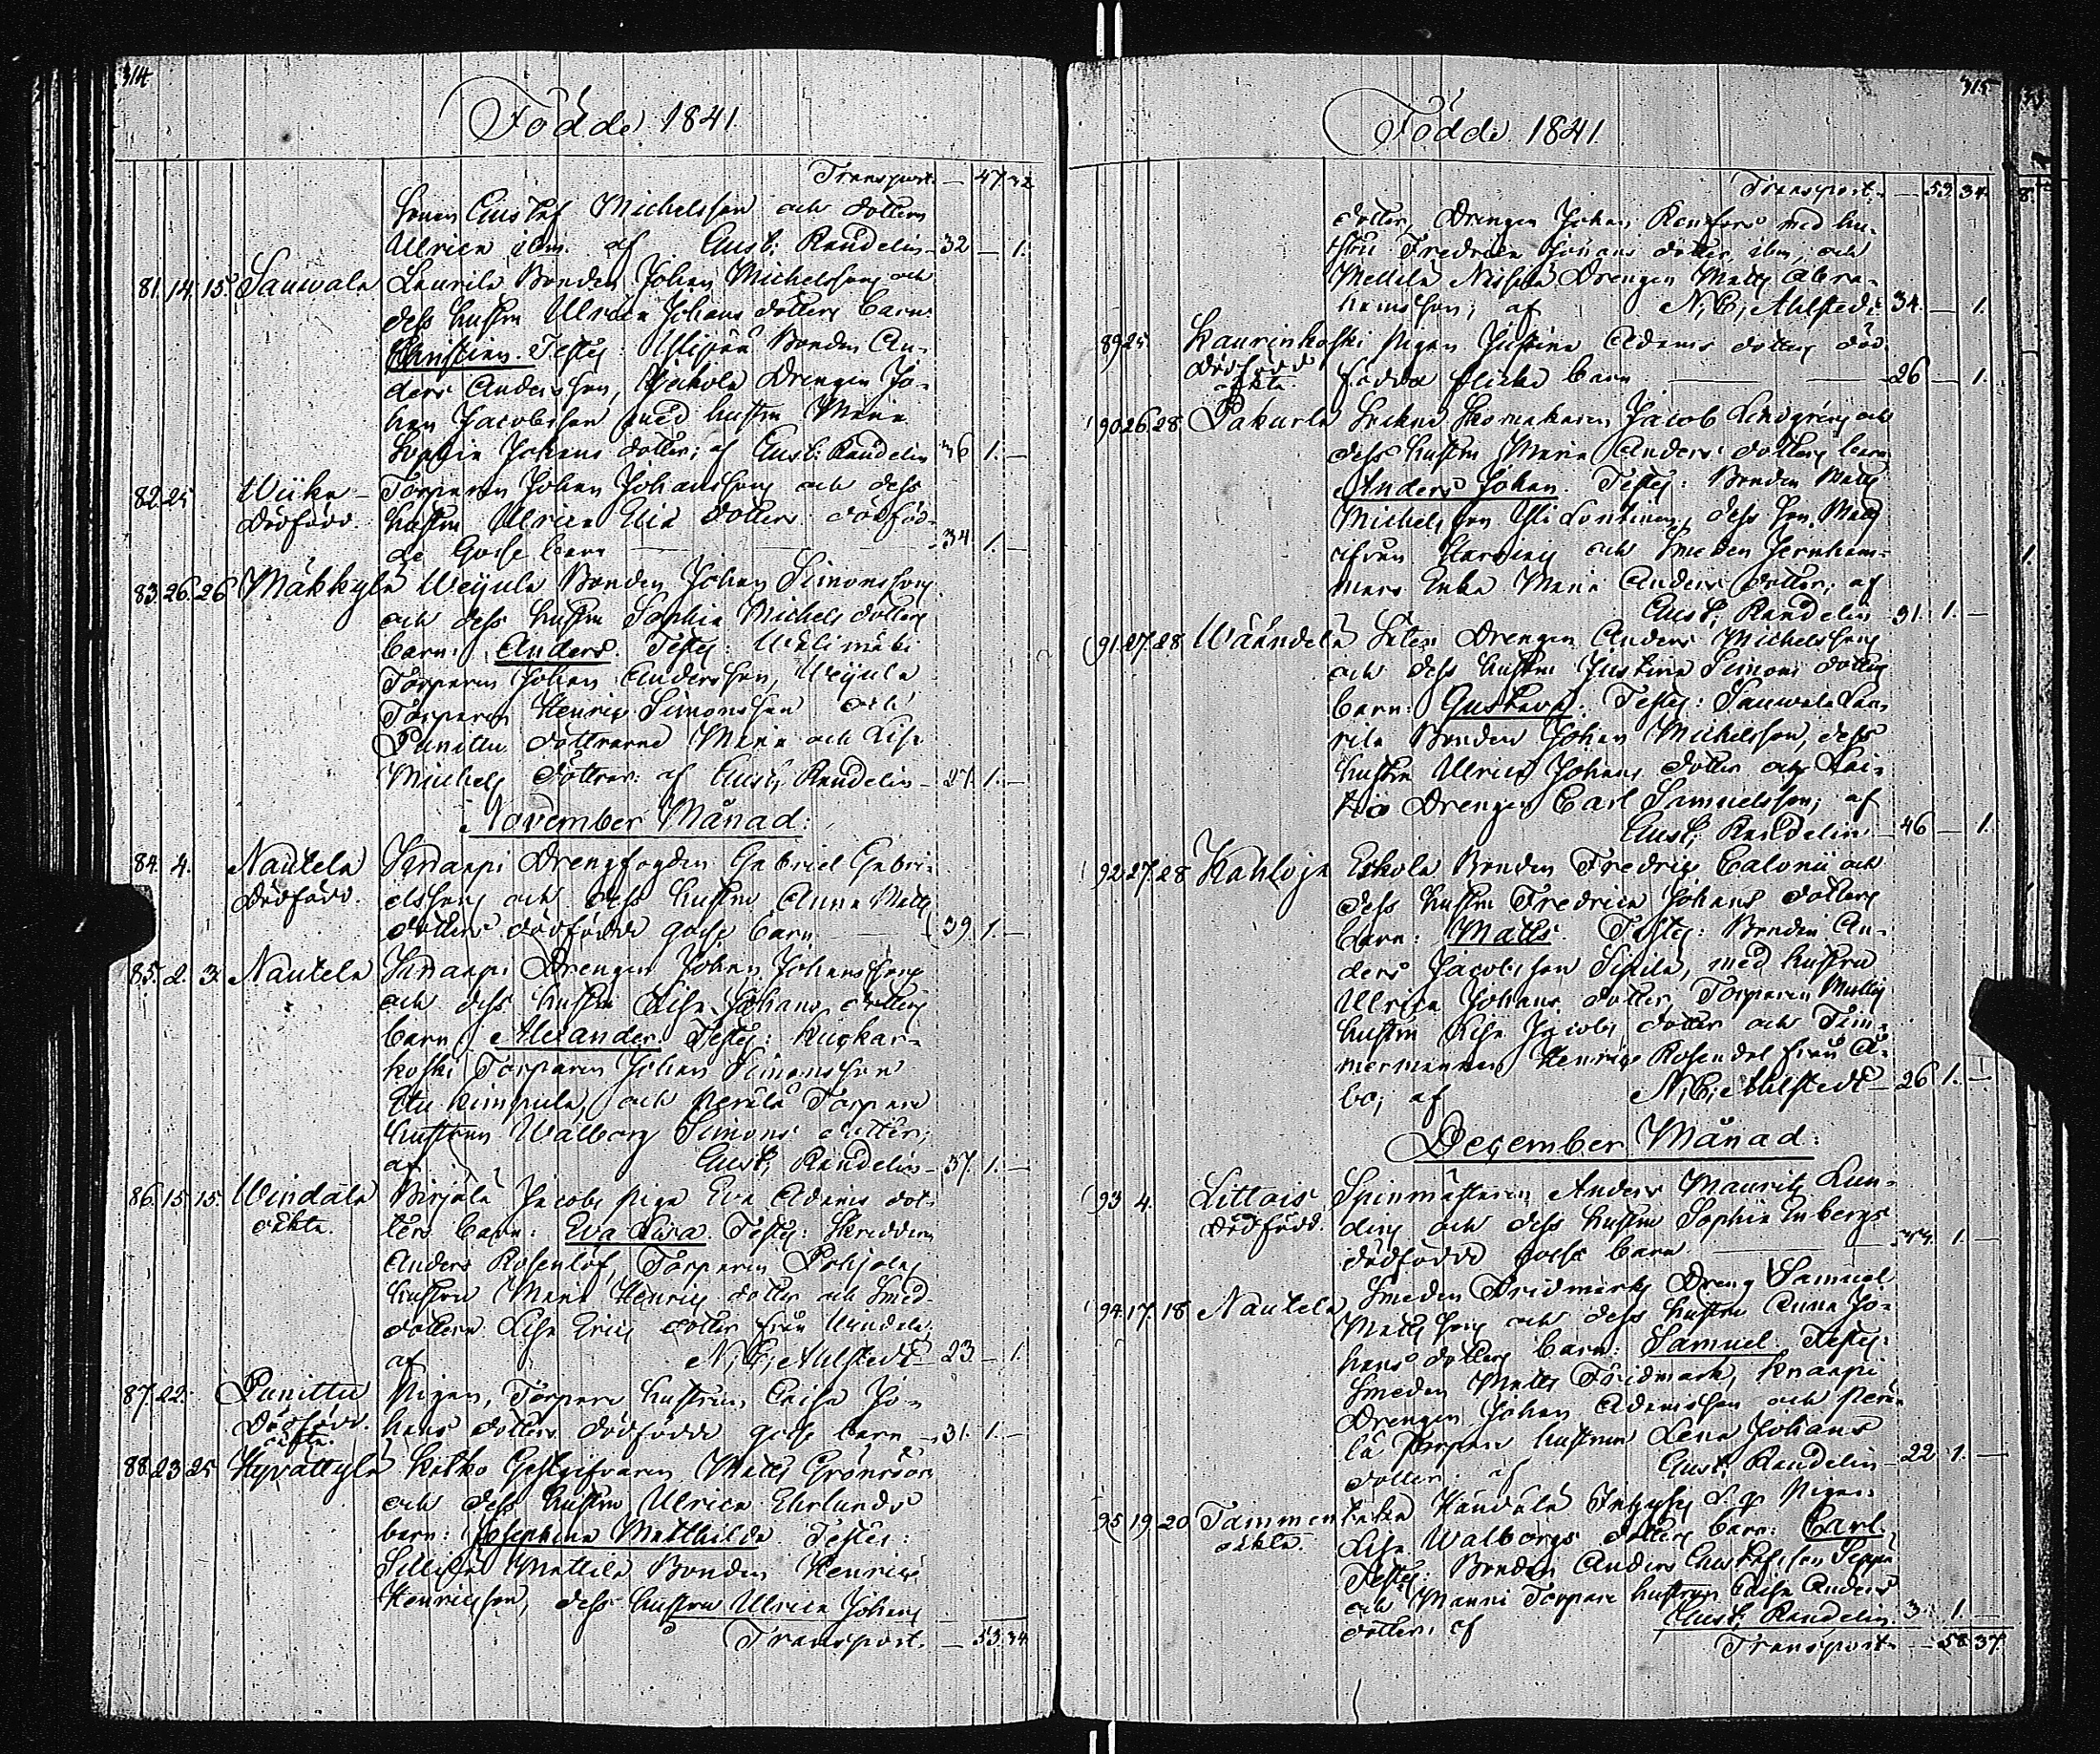 314
Födde 1841
Transport. — 47 32
sonen Gustaf Michelsson och dottern
Ulrica ibm. af Gust: Randelin 32 — 1.
81. 14. 15 Sauwala Laurila Bonden Johan Michelssons och
dess hustru Ulrica Johans dotters barn
Christina. Testes: Bonden An-
ders Andersson, Drengen Jo-
han Jacobsson med hustru Maria
Sophia Johans dotter; af Gust: Randelin 36 1. —
82. 25 Wiika Torparen Johan Johanssons och dess
Dödfödd. hustru Ulrica Elia dotters dödföd-
de Gosse barn — 34 1. —
83. 26. 26 Mäkkylä Weijula Bonden Johan Simonssons
och dess hustru Sophia Michels dotters
barn: Anders. Testes: Wälimäki
Torparen Johan Andersson, Weijula
Torparen Henric Simonsson och
Punittu döttrarne Maria och Lisa
Michels döttrar: af Gust; Randelin 27. 1. —
November Månad:
84. 4. Nautela Knaapi Drengfogden Gabriel Gabri-
Dödfödd. elssons och dess hustru Anna Matts
dotters dödfödde gosse barn — 39. 1. —
85. 2. 3. Nautela Knaapi Drengen Johan Johanssons
och dess hustru Lisa Johans dotters
barn: Alexander. Testes: Kuckar-
koski Torparen Johan Simonsson
Kimpula, och Perälä Torpare
hustrun Walborg Simons dotter;
af Gust; Randelin 37. 1. —
86. 15. 15. Windala Birjälä Jacobs Piga Eva Adams dot-
oäkta. ters barn: Eva Lisa. Testes: Skreddare
Anders Rosenlöf, Torparen Pohjolas
hustru Maria Henrics dotter och Smed
dottern Lisa Erics dotter från Windala
af N; E; Ahlstedt 23 — 1.
87. 22. Punittu Pigan, Torpare hustrun, Caisa Jo-
Dödfödd. hans dotters dödfödde gosse barn 31. 1. —
oäkta.
88. 23 25 Hypättylä Kesko Gestgifvaren Matts Grönroos
och dess hustru Ulrica Ehrlunds
barn: Josephina Mathilda. Testes:
Sillilä Mattila Bonden Henric
Henricsson, dess hustru Ulrica Johans
Transport. — 53. 34
315
Födde 1841.
Transport. — 53. 34.
dotter, Drengen Johan Renfors med hu-
stru Fredrica Johans dotter, ibm, och
Mellilä Drengen Matts Abra-
hamsson; af N; E; Ahlstedt 34. — 1.
89 25. Kaurinkoski Pigan Justina Adams dotters död-
Dödfödd födda flicke barn — 26 — 1.
oäkta.
90 26 28 Pakurla Skomakaren Jacob Lindgréns och
dess hustru Maria Anders dotters barn
Anders Johan. Testes: Bonden Matts
Michelsson dess son Matts
ifrån och Smeden Jernham-
mars Enka Maria Anders dotter; af
Gust; Randelin 31. 1. —
91. 27. 28 Wäändelä Drengen Anders Michelssons
och dess hustru Justina Simons dotters
barn: Gustava. Testes: Sauwala Lau-
rila Bonden Johan Michelsson, dess
hustru Ulrica Johans dotter och Lai-
Drengen Carl Samuelsson; af
Gust; Randelin 46 — 1.
92. 27. 28 Kahloja Eskola Bonden Fredric Calonii och
dess hustru Fredrica Johans dotters
barn: Matts. Testes: Bonden An-
ders Jacobsson Sipila, med hustru
Ulrica Johans dotter, Torparen Matts
hustru Lisa Jacobs dotter och Tim-
mermannen Henric Rosendal från Å-
bo; af N; E; Ahlstedt 26 1. —
December Månad:
93 4. Littois Spinmästaren Anders Maurits Lun-
Dödfödd. dins och dess hustru Sophia Enbergs
dödfödde gosse barn — 1. —
94. 17. 18 Nautela Smeden Fridmarks Dreng Samuel
Matts sons och dess hustru Anna Jo-
hans dotters barn: Samuel. Testes:
Smeden Matts Fridmark, Knaapi
Drengen Johan Adamsson och Perä-
lä Torpare hustrun Lena Johans
dotter: af Gust; Randelin 22 1. —
95 19. 20 Tammen Pigan
oäkta. Lisa Walborgs dotters barn: Carl.
Testes: Bonden Anders Gustafsson Seppä
och Manni Torpare hustrun Caisa Anders
dotter: af Gust; Randelin. 3 1. —
Transport. — 58 37.